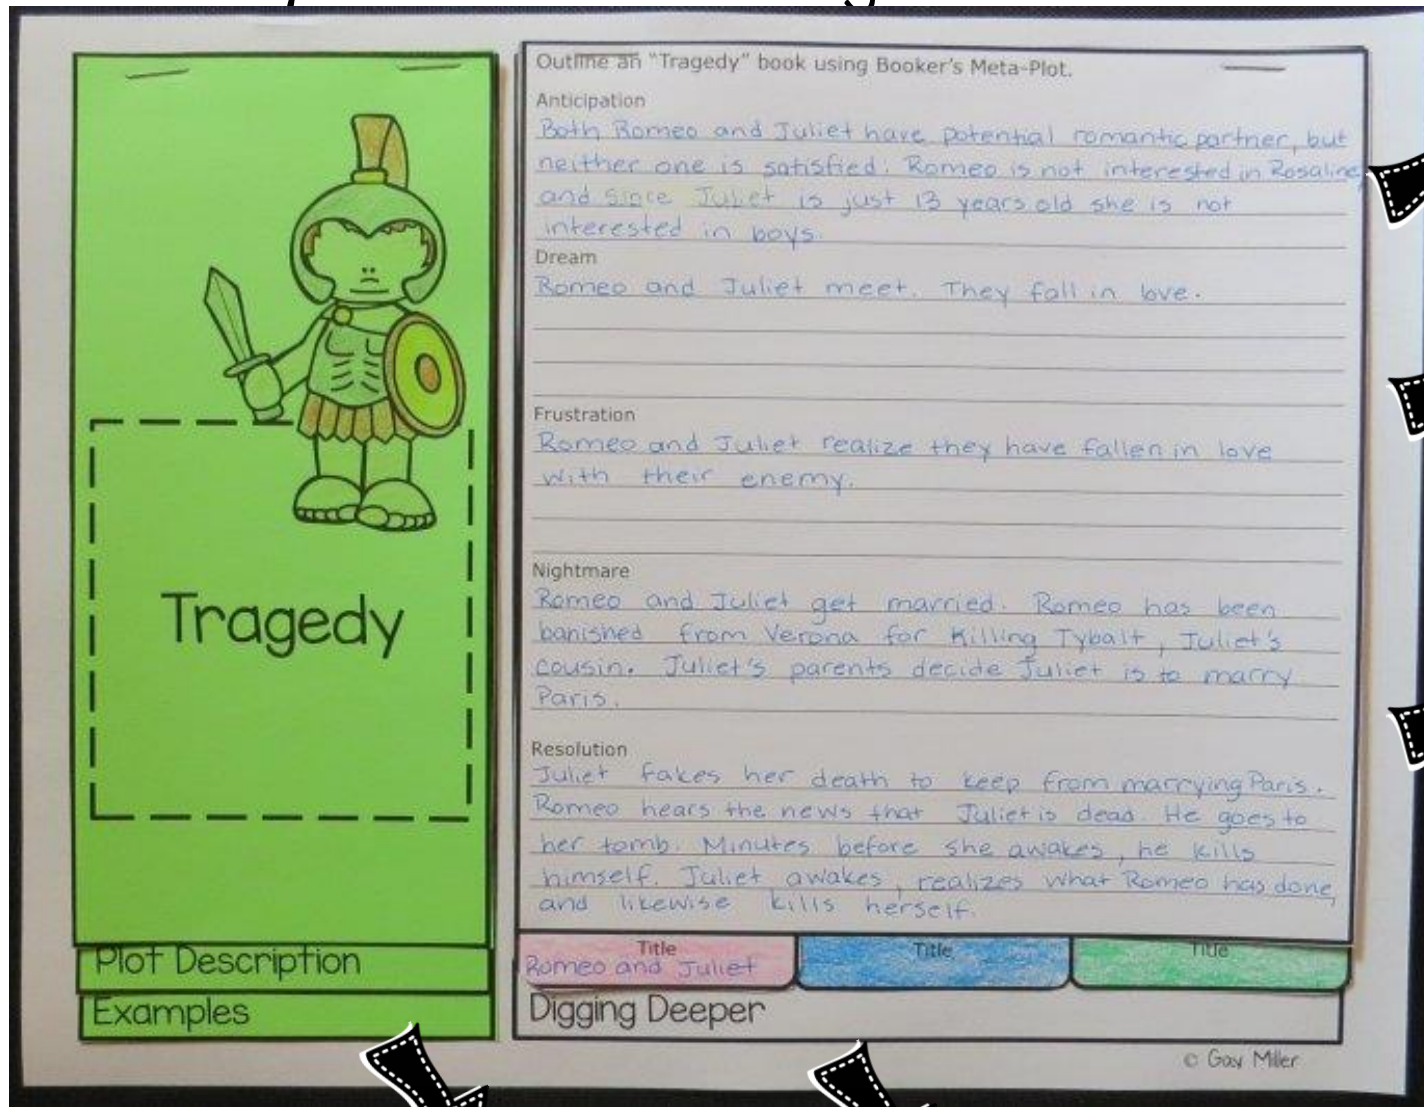 Tragedy
Plot Description
Examples
Outline an "Tragedy" book using Booker's Meta-Plot.
Anticipation
Both Romeo and Juliet have potential romantic partner, but
neither one is satisfied. Romeo is not interested in Rosaline,
and since Juliet is just 13 years old she is not
interested in boys.
Dream
Romeo and Juliet meet. They fall in love.
Frustration
Romeo and Juliet realize they have fallen in love
with their enemy.
Nightmare
Romeo and Juliet get married. Romeo has been
banished from Verona for killing Tybalt, Juliet's
cousin. Juliet's parents decide Juliet is to marry
Paris.
Resolution
Juliet fakes her death to keep from marrying Paris.
Romeo hears the news that Juliet is dead. He goes to
her tomb. Minutes before she awakes, he kills
himself. Juliet awakes, realizes what Romeo has done,
and likewise kills herself.
Title Title Title
Romeo and Juliet
Digging Deeper
© Gay Miller